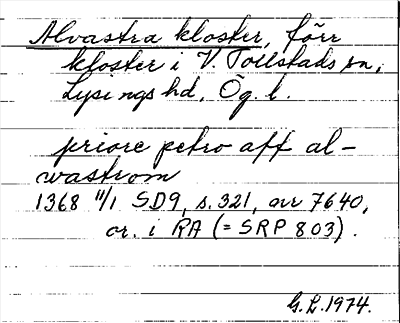 Alvastra kloster, förr
kloster i V. Tollstads sn,
Lysings hd, Ög. l.
priore petro aff al-
wastrom
1368 11/1 SD9, s. 321, nr 7640,
or. i RA (= SRP 803).
G.L. 1974.